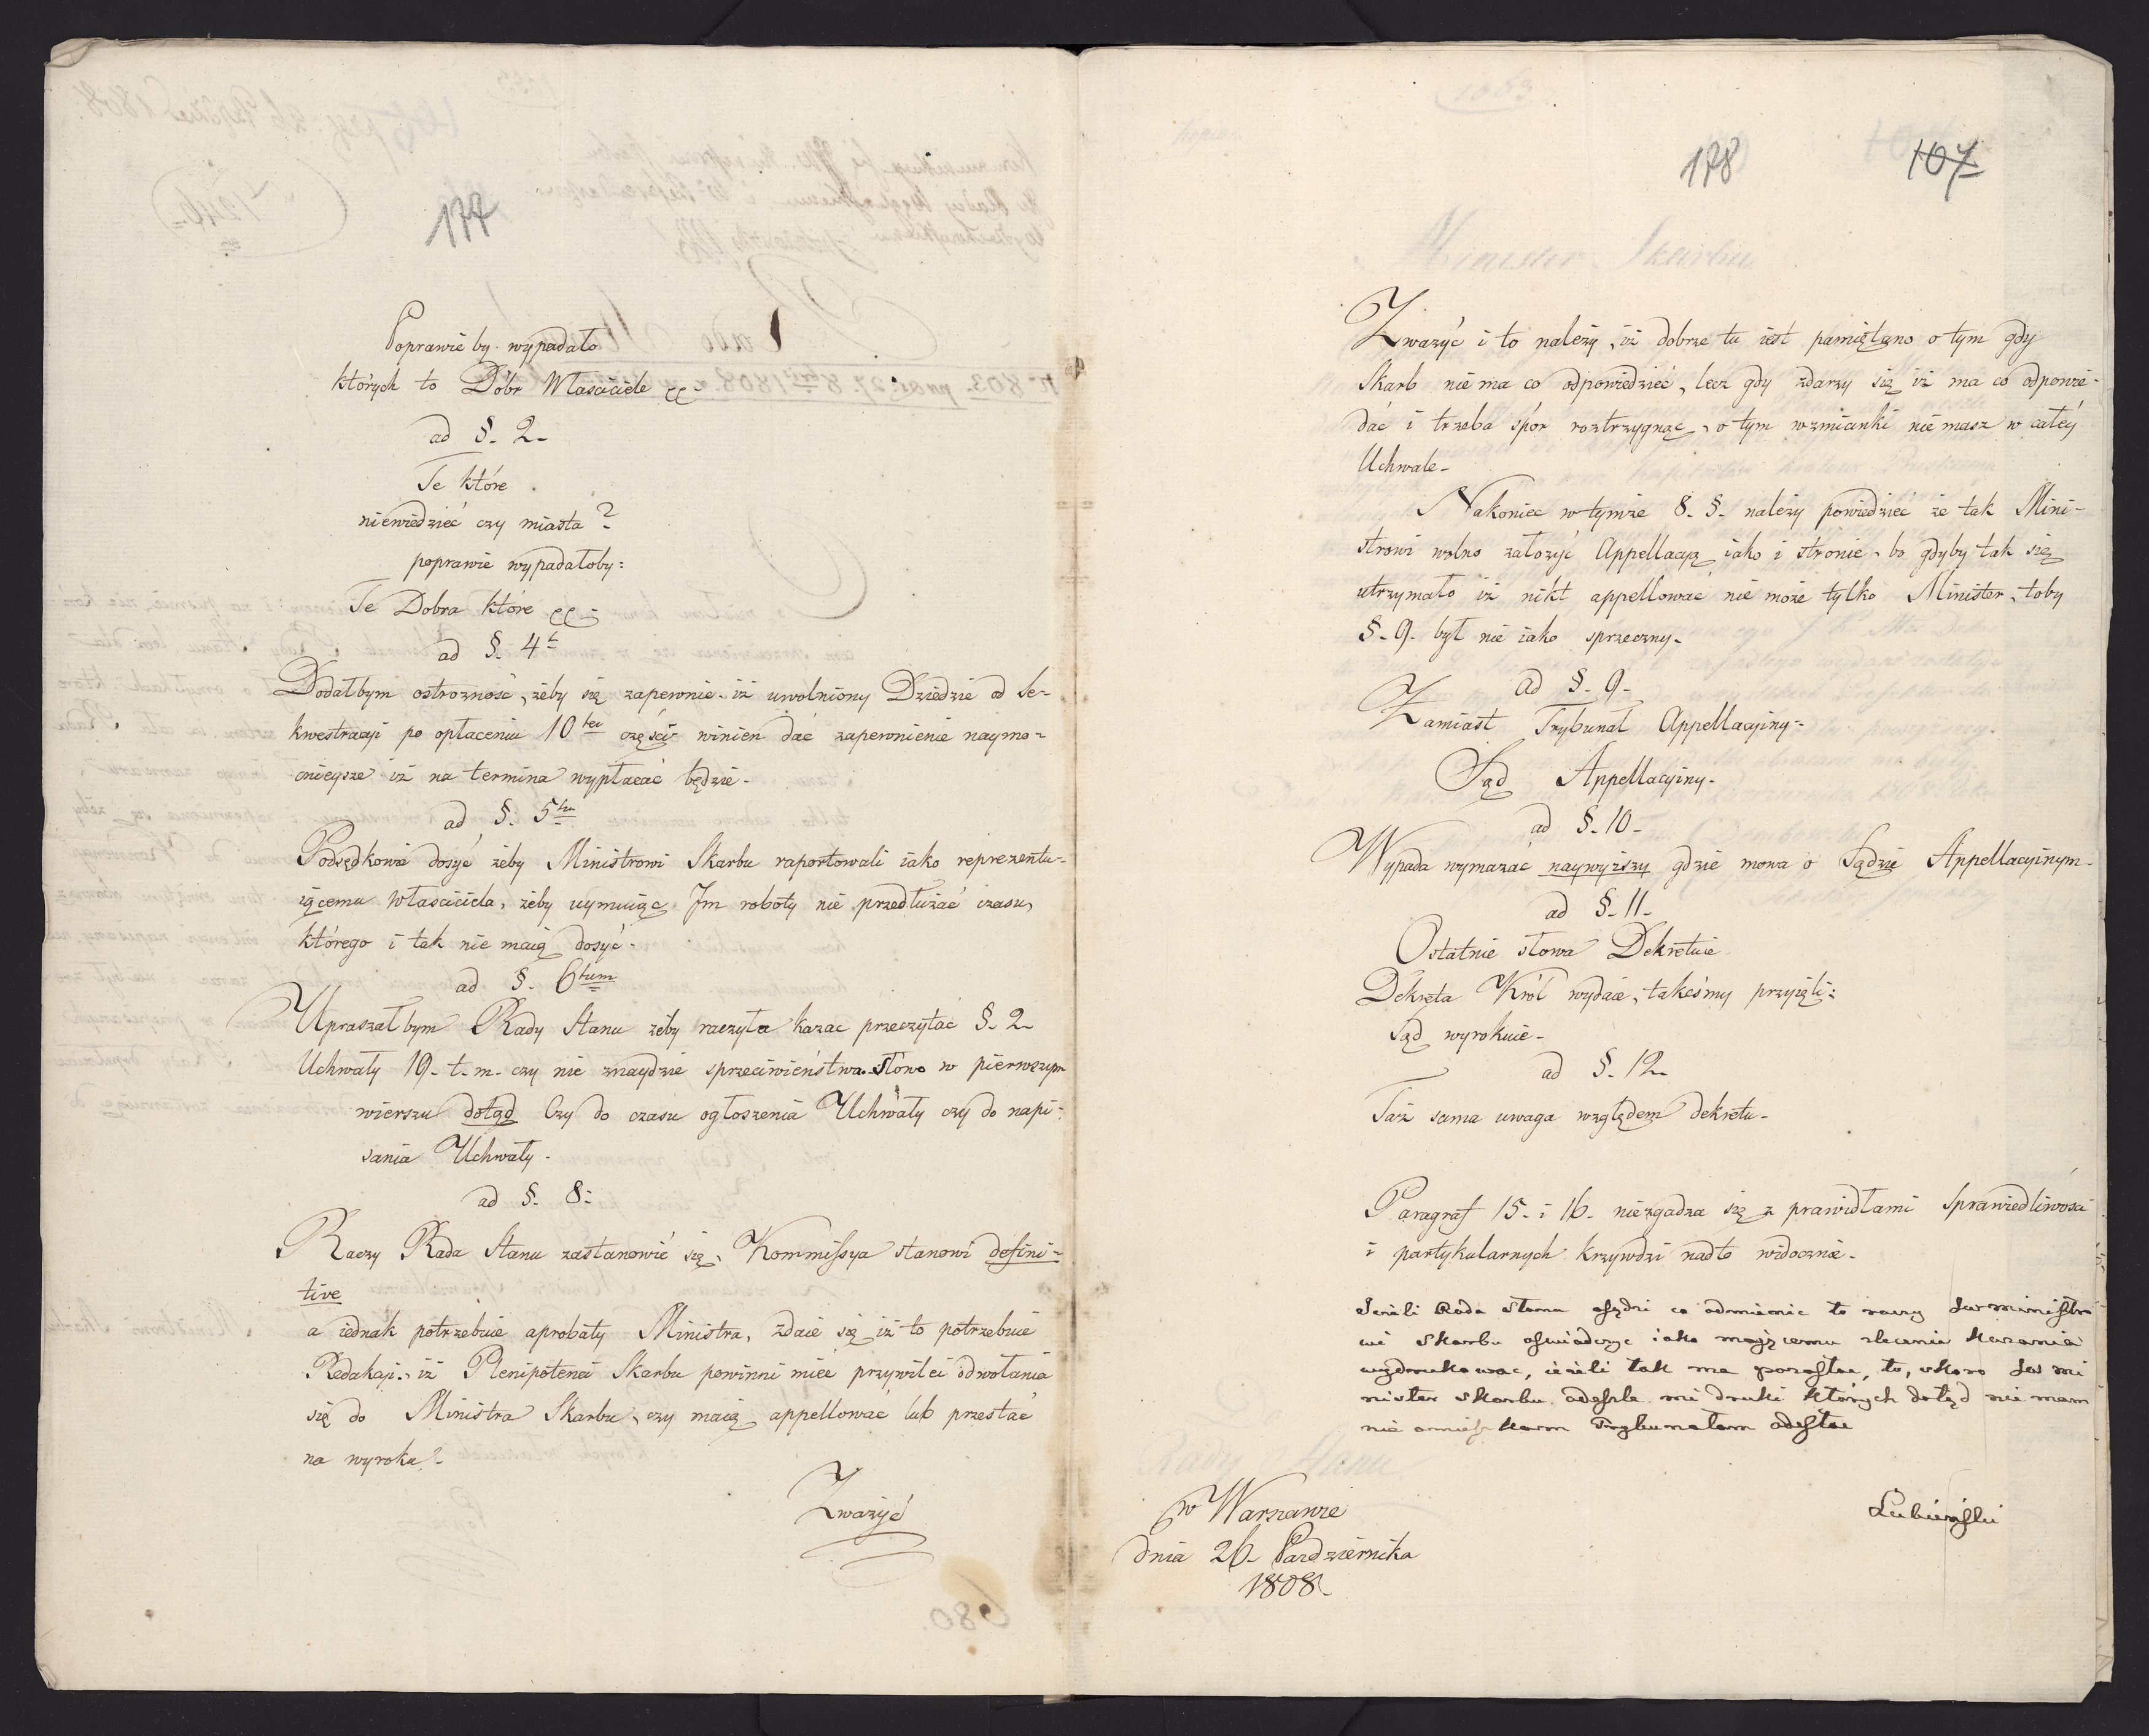 177
Poprawie by wypadało
których to Dóbr Własciciele
ad §. 2
Te które
niewiedzieć czy miasta?
poprawie wypadałoby:
Te Dobra które
ad §. 4
Dodałbym ostrożność, żeby się zapewnić iż uwolniony Dziedzic od Se-
kwestracyi po opłaceniu 10tey części winien dać zapewnienie naymo-
cnieysze iż na termina wypłacać będzie.
ad §. 5
Podsędkowie dosyć żeby Ministrowi Skarbu raportowali iako reprezentu-
iącemu Własciciela, żeby uymuiąc Jm roboty nie przedłużać czasu,
którego i tak nie maią dosyć.
ad §. 6tum
Upraszałbym Rady Stanu żeby raczyła kazac przeczytać §. 2
Uchwały 19. t. m. czy nie znaydzie sprzeciwieństwa. Słowo w pierwszym
wierszu dotąd Czy do czasu ogłoszenia Uchwały czy do napi-
sania Uchwały.
ad §. 8:
Raczy Rada Stanu zastanowić się, Kommissya stanowi defini-
tive
a iednak potrzebuie aprobaty Ministra, Zdaie się iż to potrzebuie
Redakcyi. iż Plenipotenci Skarbu powinni mieć przywilei odwołania
się do Ministra Skarbu, czy maią appellować lub przestać
na wyroku?
Zważyć
178
107
Zważyć i to należy, iż dobrze tu iest pamiętano o tym gdy
Skarb nie ma co odpowiedzieć, lecz gdy zdarzy się iż ma co odpowie-
dać i trzeba spór roztrzygnąć, o tym wzmianki nie masz w całéy
Uchwale.
Nakoniec w tymże 8. §. należy powiedzieć że tak Mini-
strowi wolno założyć Appellacyą iako i stronie. bo gdyby tak się
utrzymało iż nikt appellować nie może tylko Minister, toby
§. 9. był nie iako sprzeczny.
ad §. 9.
Zamiast Trybunał Appellacyiny:
Sąd Appellacyiny.
ad §. 10.
Wypada wymazać naywyższy gdzie mowa o Sądzie Appellacyinym.
ad §. 11.
Ostatnie słowa Dekretuie
Dekreta Król wydaie, takeśmy przyięli:
Sąd wyrokuie.
ad §. 12
Taż sama uwaga względem dekretu.
Paragraf 15. i 16. niezgadza się z prawidłami Sprawiedliwości
i partykularnych krzywdzi nadto widocznie.
Jeżeli Rada stanu osądzi co odmienic to raczy ministro
wi skarbu oswiadczyc iako mającemu zlecenie kazania
wydrukowac, ieżeli tak ma pozostac, to, skoro mi
nister skarbu odeszle mi druki których dotąd nie mam
nie Trybunałom odesłac
Lubieński
w Warszawie
dnia 26. Pazdziernika
1808.